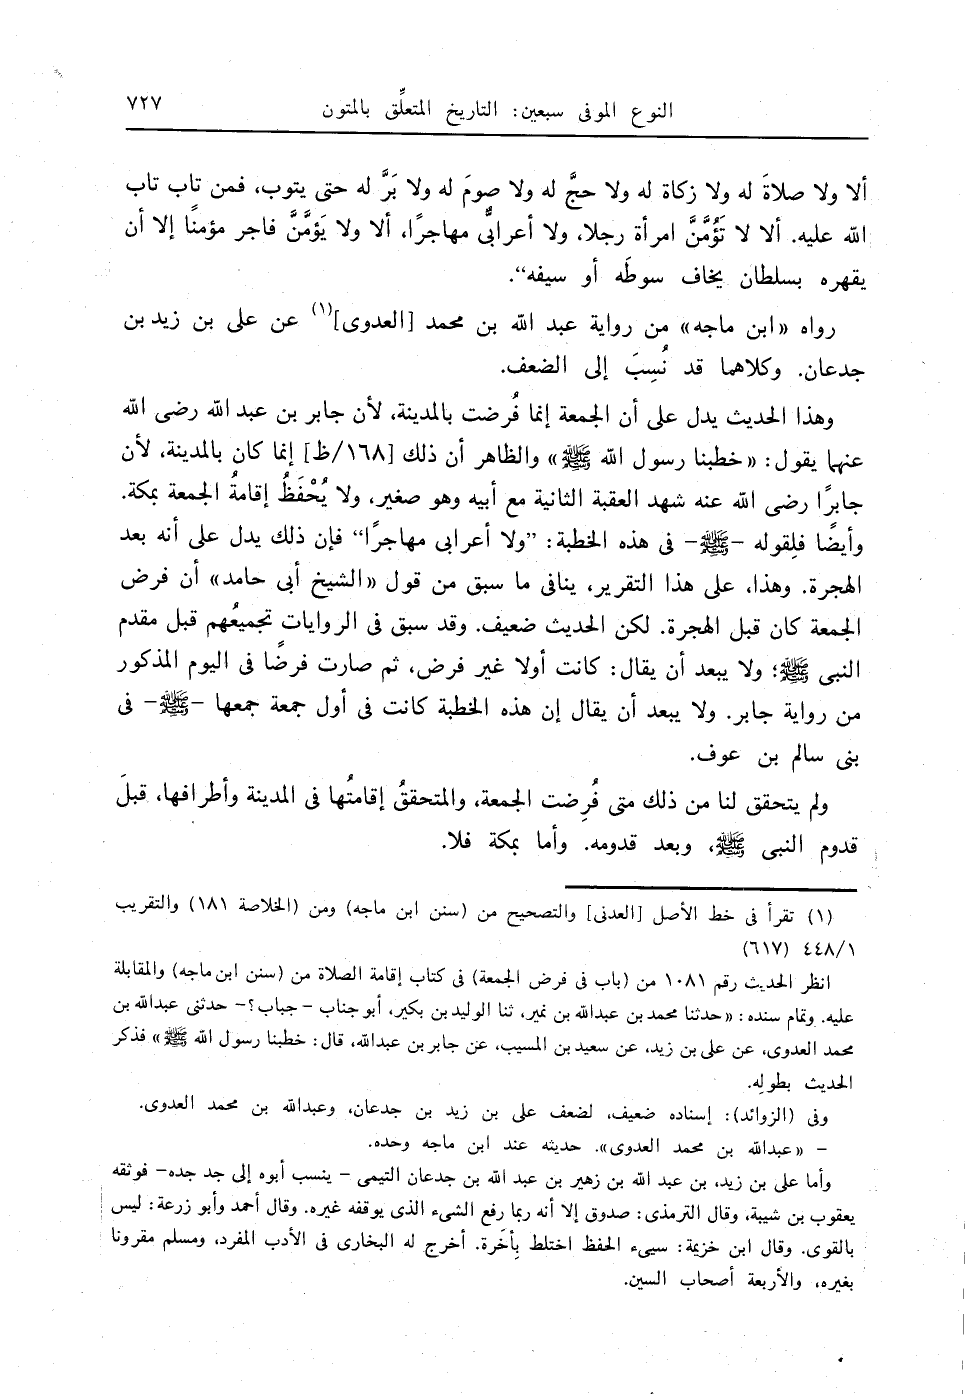 النوع الموفى سبعين: التاريخ المتعلِّق بالمتون ٧٢٧
ألا ولا صلاةَ له ولا زكاة له ولا حجَّ له ولا صومَ له ولا بَرَّ له حتى يتوب، فمن تاب تاب
الله عليه. ألا لا تَؤُمَّنَّ امرأة رجلا، ولا أعرابىٌّ مهاجرًا، ألا ولا يَؤمَّنَّ فاجر مؤمنًا إلا أن
يقهره بسلطان يخاف سوطَه أو سيفه“.
رواه «ابن ماجه» من رواية عبد الله بن محمد [العدوى](١) عن على بن زيد بن
جدعان. وكلاهما قد نُسِبَ إلى الضعف.
وهذا الحديث يدل على أن الجمعة إنما فُرضت بالمدينة، لأن جابر بن عبد الله رضى الله
عنهما يقول: «خطبنا رسول الله ﷺ» والظاهر أن ذلك [١٦٨/ظ] إنما كان بالمدينة، لأن
جابرًا رضى الله عنه شهد العقبة الثانية مع أبيه وهو صغير، ولا يُحْفَظُ إقامةُ الجمعة بمكة.
وأيضًا فلِقوله -ﷺ- فى هذه الخطبة: ”ولا أعرابى مهاجرًا“ فإن ذلك يدل على أنه بعد
الهجرة. وهذا، على هذا التقرير، ينافى ما سبق من قول «الشيخ أبى حامد» أن فرض
الجمعة كان قبل الهجرة. لكن الحديث ضعيف. وقد سبق فى الروايات تجميعُهم قبل مقدم
النبى ﷺ؛ ولا يبعد أن يقال: كانت أولا غير فرض، ثم صارت فرضًا فى اليوم المذكور
من رواية جابر. ولا يبعد أن يقال إن هذه الخطبة كانت فى أول جمعة جمعها -ﷺ- فى
بنى سالم بن عوف.
ولم يتحقق لنا من ذلك متى فُرِضت الجمعة، والمتحققُ إقامتُها فى المدينة وأطرافها، قبلَ
قدوم النبى ﷺ، وبعد قدومه. وأما بمكة فلا.
(١) تقرأ فى خط الأصل [العدنى] والتصحيح من (سنن ابن ماجه) ومن (الخلاصة ١٨١) والتقريب
٤٤٨/١ (٦١٧)
انظر الحديث رقم ١٠٨١ من (باب فى فرض الجمعة) فى كتاب إقامة الصلاة من (سنن ابن ماجه) والمقابلة
عليه. وتمام سنده: «حدثنا محمد بن عبدالله بن نمير، ثنا الوليد بن بكير، أبو جناب - جباب؟- حدثنى عبدالله بن
محمد العدوى، عن على بن زيد، عن سعيد بن المسيب، عن جابر بن عبدالله، قال: خطبنا رسول الله ﷺ» فذكر
الحديث بطولِه.
وفى (الزوائد): إسناده ضعيف، لضعف على بن زيد بن جدعان، وعبدالله بن محمد العدوى.
- «عبدالله بن محمد العدوى». حديثه عند ابن ماجه وحده.
وأما على بن زيد، بن عبد الله بن زهير بن عبد الله بن جدعان التيمى - ينسب أبوه إلى جد جده- فوثقه
يعقوب بن شيبة، وقال الترمذى: صدوق إلا أنه ربما رفع الشىء الذى يوقفه غيره. وقال أحمد وأبو زرعة: ليس
بالقوى. وقال ابن خزيمة: سيىء الحفظ اختلط بِأخَرة. أخرج له البخارى فى الأدب المفرد، ومسلم مقرونا
بغيره، والأربعة أصحاب السنن.